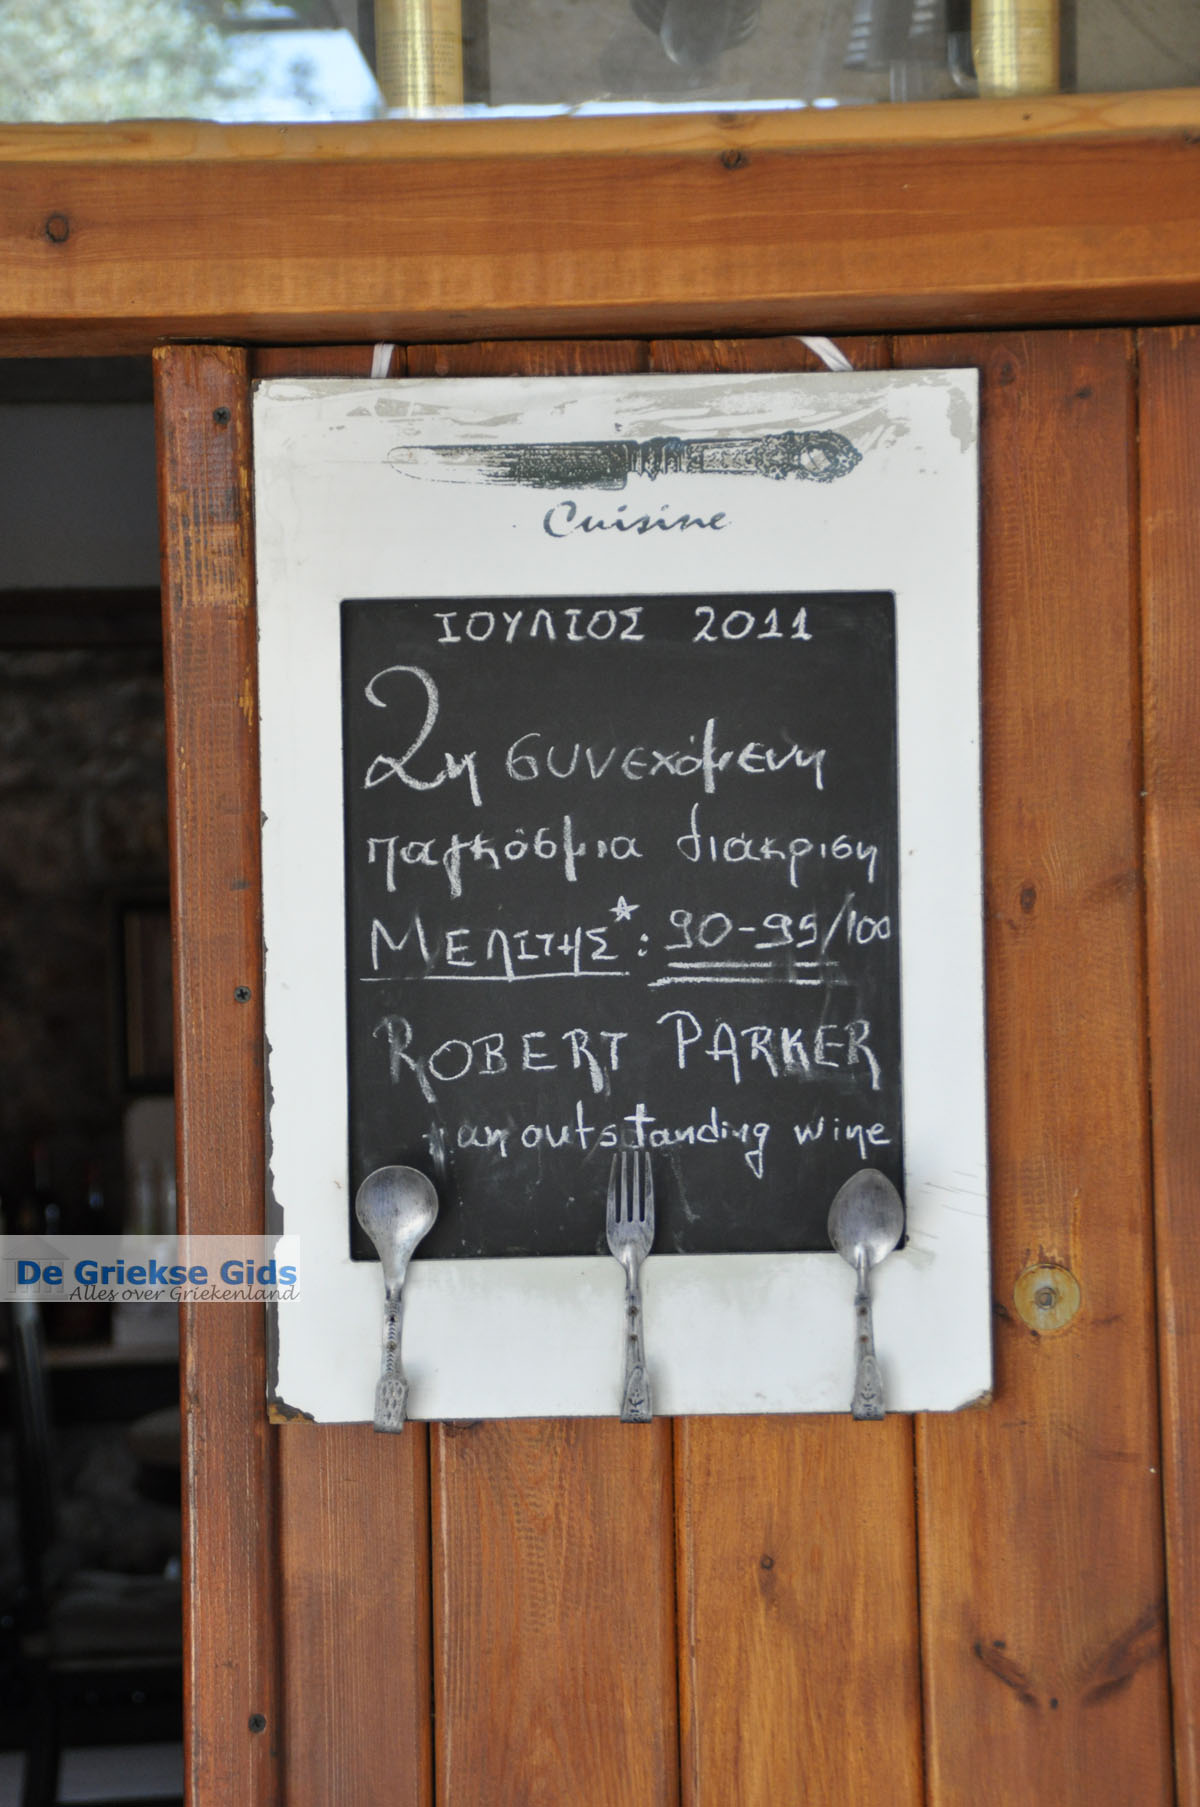 Cuisine
ΙΟΥΛΙΟΣ 2011
2η συνεχόμενη
παγκόσμια διάκριση
ΜΕΛΙΤΗΣ*: 90-95/100
ROBERT PARKER
an outstanding wine
De Griekse Gids
Alles over Griekenland